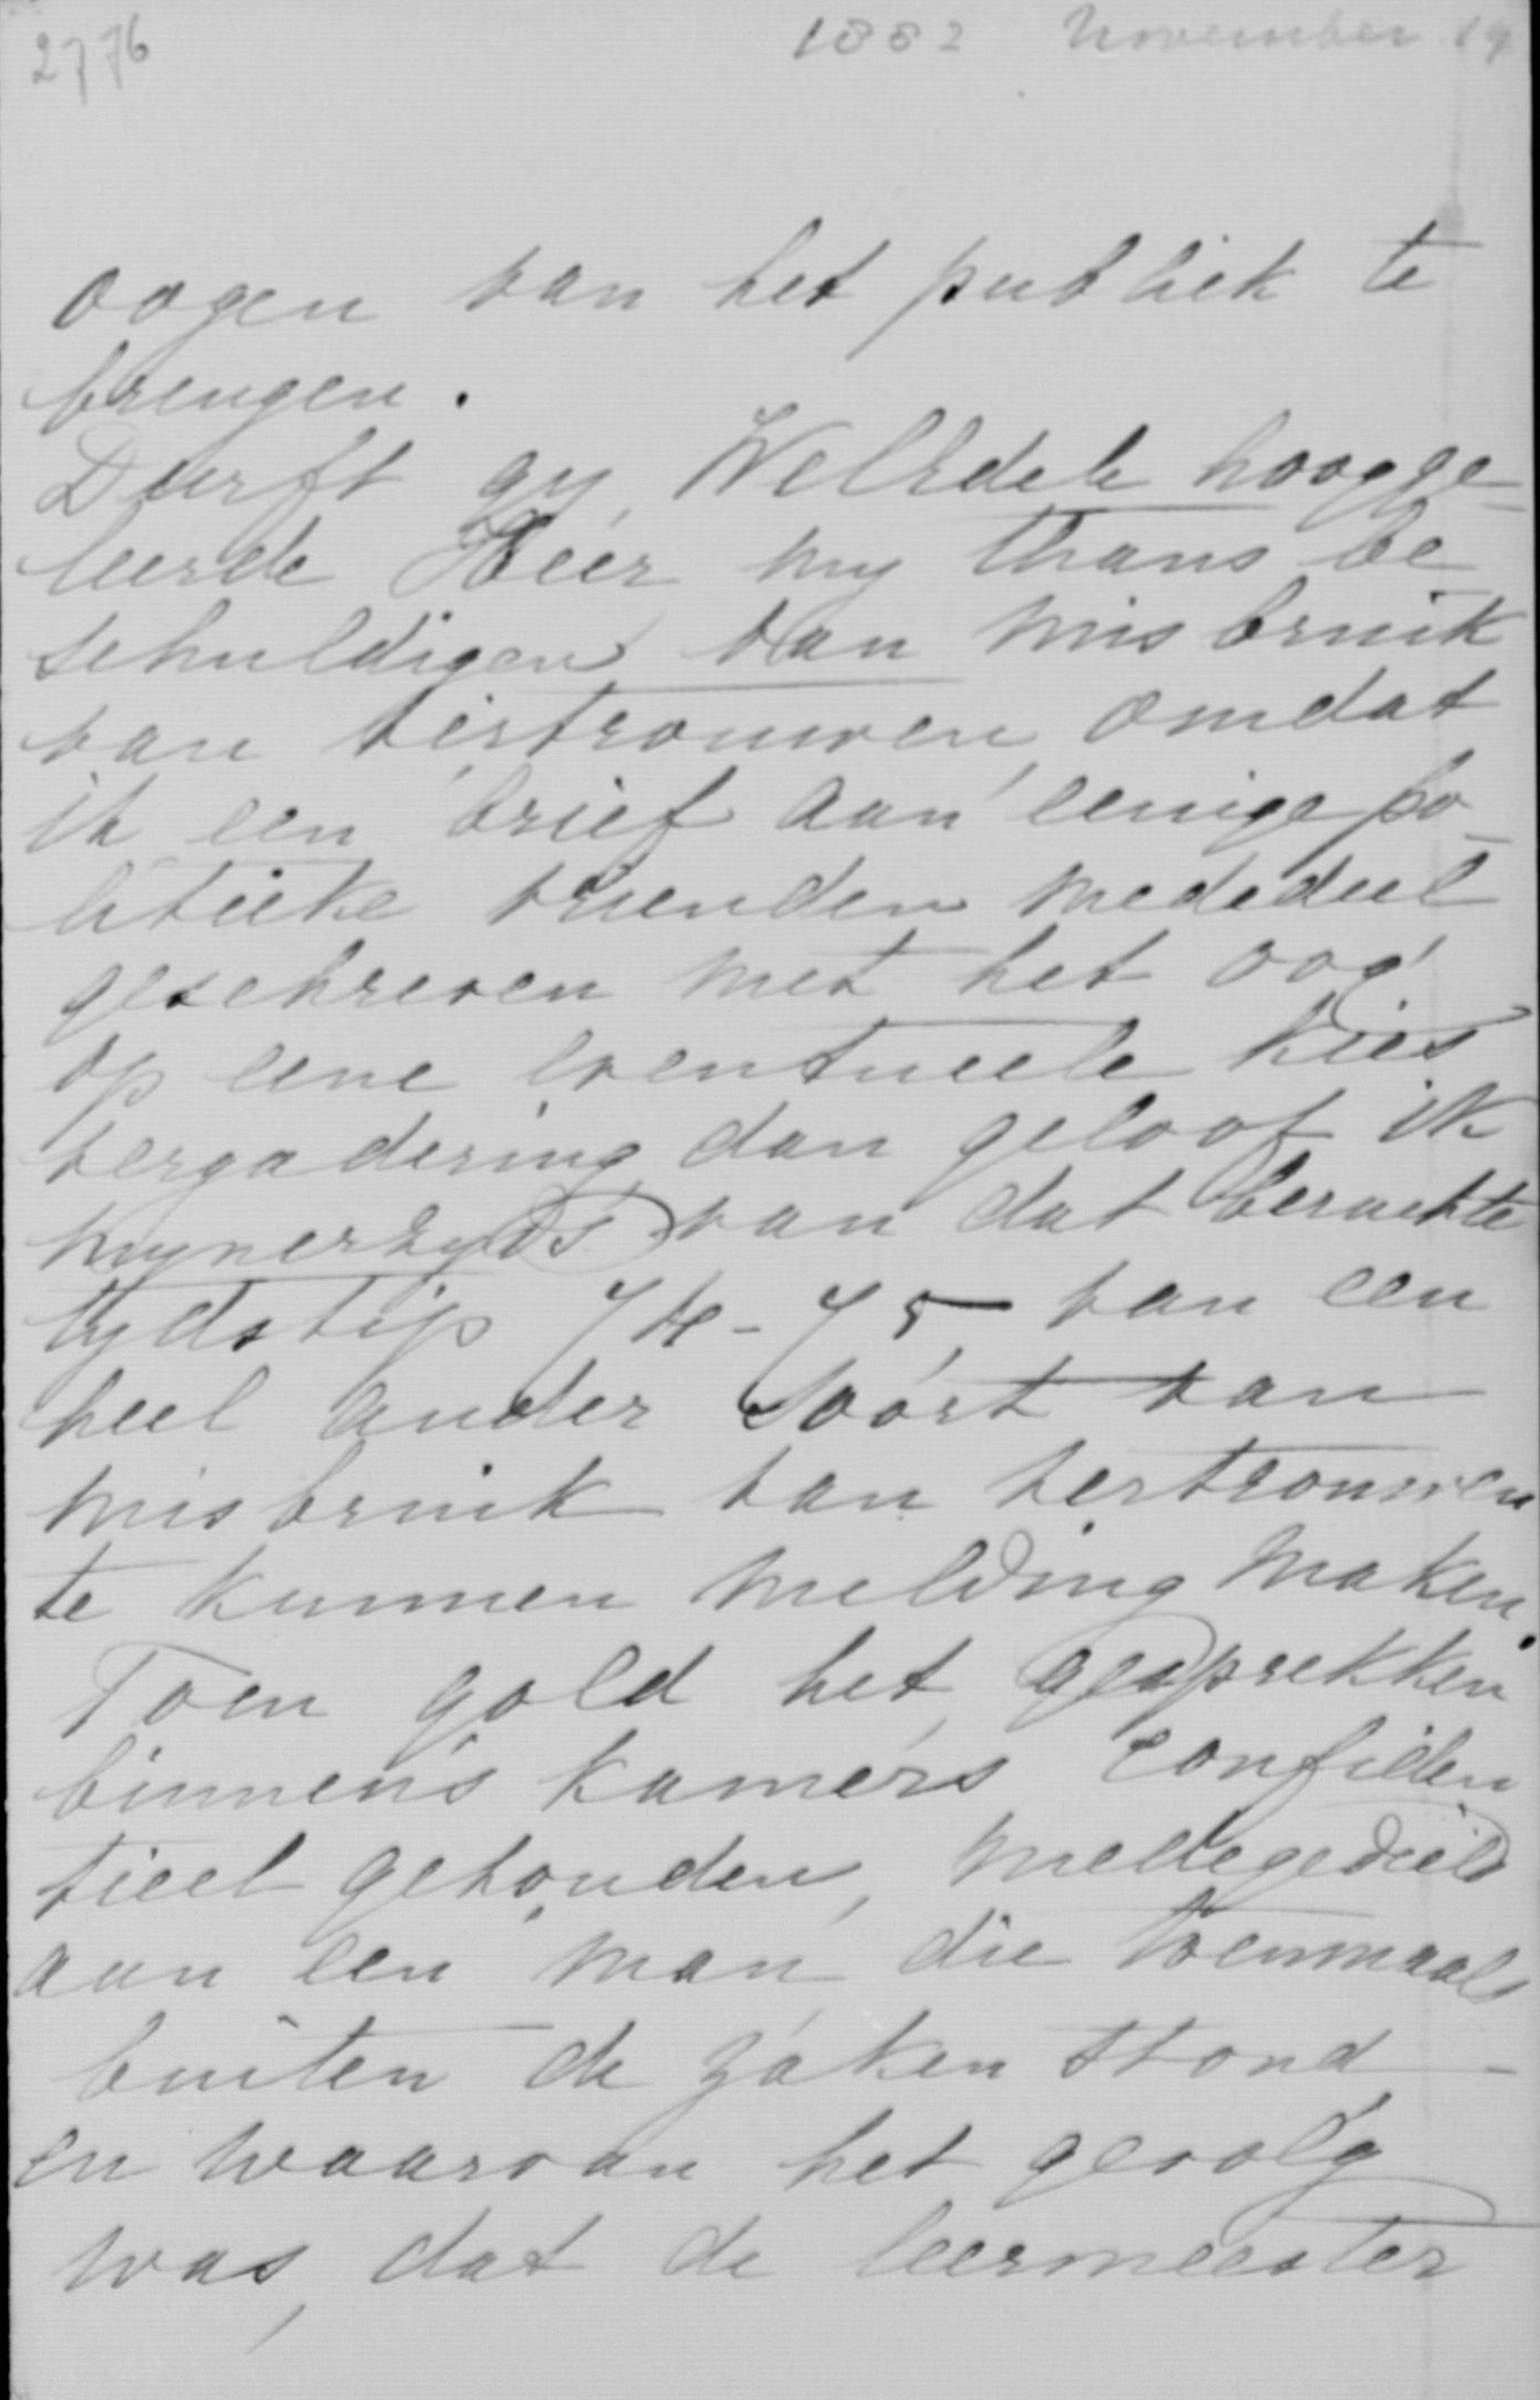 2776 1882 November 19
oogen van het publiek te
brengen.
Durft gy, WelEdele hoogge-
leerde Heer my thans be
schuldigen van misbruik
van vertrouwen, omdat
ik een brief aan eenige po-
litieke vrienden mededeel
geschreven met het oog
op eene eventueele kies
vergadering, dan geloof ik
mynerzyds van dat beruchte
tydstip 74-75, van een
heel ander soort van
misbruik van vertrouwen
te kunnen melding maken.
Toen gold het gesprekken
binnen's kamers confiden
tieel gehouden, medegedeeld
aan een man, die toenmaals
buiten de zaken stond -
en waarvan het gevolg
was, dat de leermeester